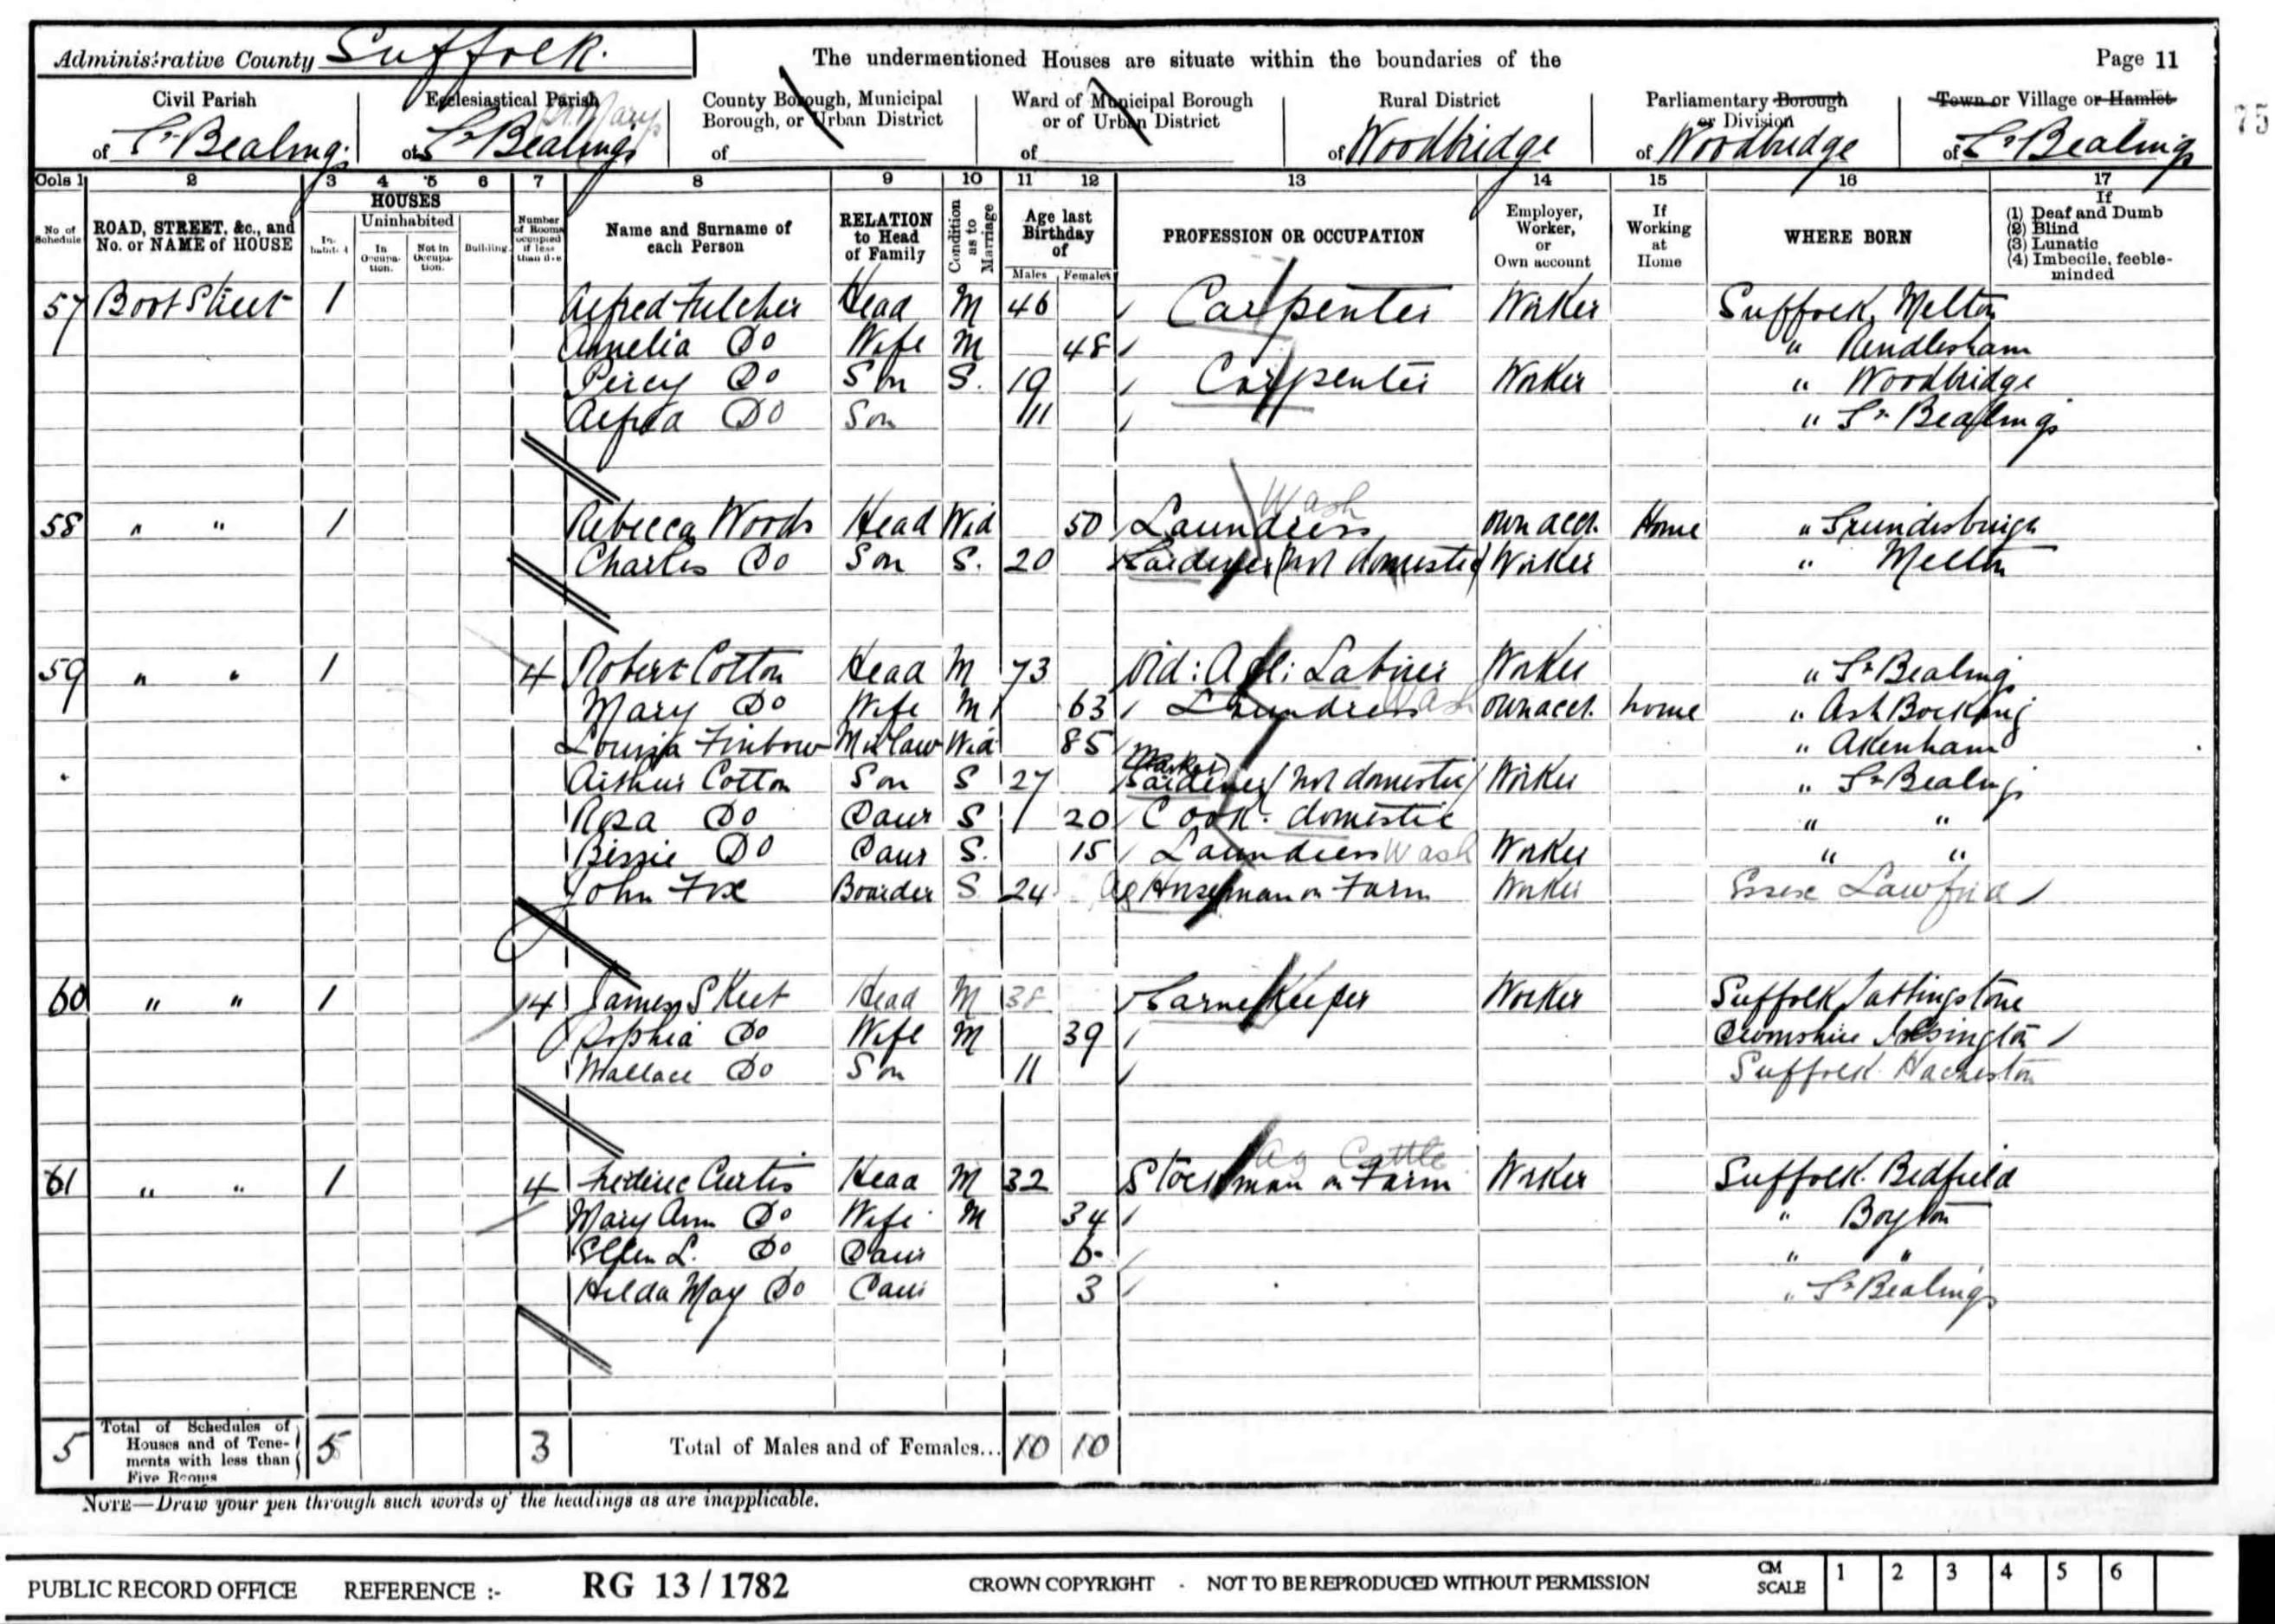 Administrative County Suffolk.
The undermentioned Houses are situate within the boundaries of the
Page 11
Civil Parish of Gt Bealings
Ecclesiastical Parish of Gt Bealings St. Mary
County Borough, Municipal Borough, or Urban District of
Ward of Municipal Borough or of Urban District of
Rural District of Woodbridge
Parliamentary Borough or Division of Woodbridge
Town or Village or Hamlet of Gt Bealings
75
Cols 1 2 3 4 5 6 7 8 9 10 11 12 13 14 15 16 17
No. of Schedule
ROAD, STREET, &c., and No. or NAME of HOUSE
HOUSES
Inhabited
Uninhabited
In Occupation.
Not in Occupation.
Building
Number of Rooms occupied if less than five
Name and Surname of each Person
RELATION to Head of Family
Condition as to Marriage
Age last Birthday of
Males Females
PROFESSION OR OCCUPATION
Employer, Worker, or Own account
If Working at Home
WHERE BORN
If
(1) Deaf and Dumb
(2) Blind
(3) Lunatic
(4) Imbecile, feeble-minded
57 Boot Street 1 Alfred Fulcher Head M 46 Carpenter Worker Suffolk Melton
Amelia Do Wife M 48 " Rendlesham
Percy Do Son S. 19 Carpenter Worker " Woodbridge
Alfred Do Son 11 " Gt Bealings
58 " " 1 Rebecca Woods Head Wid 50 Laundress Wash own acct. Home " Grundisburgh
Charles Do Son S. 20 Gardener (not domestic) Worker " Melton
59 " " 1 4 Robert Cotton Head M 73 Ord: Agl: Labourer Worker " Gt Bealings
Mary Do Wife M 63 Laundress Wash own acct. home " Ash Bocking
Louisa Finbow M in law Wid 85 " Akenham
Arthur Cotton Son S 27 Market Gardener (not domestic) Worker " Gt Bealings
Rosa Do Daur S 20 Cook. domestic " "
Bessie Do Daur S. 15 Laundress Wash Worker " "
John Fox Boarder S 24 Ag Horseman on Farm Worker Essex Lawford
60 " " 1 4 James Skeet Head M 38 Gamekeeper Worker Suffolk Tattingstone
Sophia Do Wife M 39 Devonshire Ilsington
Wallace Do Son 11 Suffolk Hacheston
61 " " 1 4 Frederic Curtis Head M 32 Stockman on Farm Ag Cattle Worker Suffolk. Bedfield
Mary Ann Do Wife M 34 " Boyton
Ellen L. Do Daur 6 " "
Hilda May Do Daur 3 " Gt Bealings
5 Total of Schedules of Houses and of Tenements with less than Five Rooms 5 3 Total of Males and of Females... 10 10
NOTE—Draw your pen through such words of the headings as are inapplicable.
PUBLIC RECORD OFFICE REFERENCE :- RG 13 / 1782 CROWN COPYRIGHT - NOT TO BE REPRODUCED WITHOUT PERMISSION CM SCALE 1 2 3 4 5 6